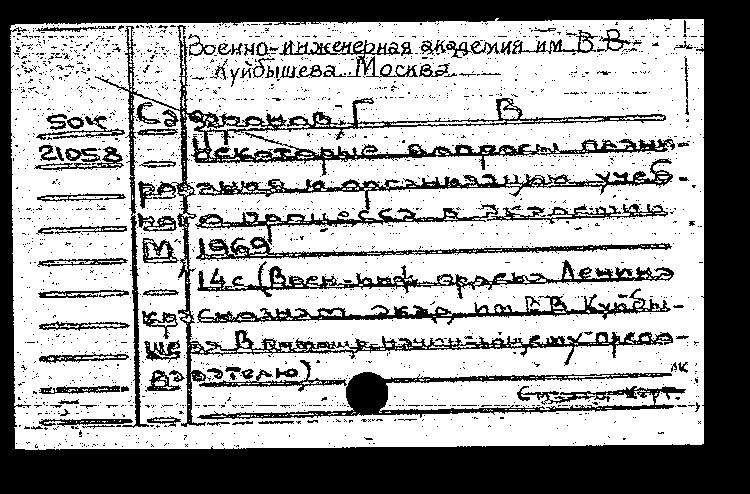 Военно-инженерная академия им В В
Куйбышева. Москва
50к Сафронов Г В
21058 Некоторые вопросы плани-
рования и организации учеб-
ного процесса в академии
М 1969
14с. (Воен-инж. ордена Ленина
краснознам акад им В В Куйбы-
шева В помощь начинающему препо-
давателю)
лк